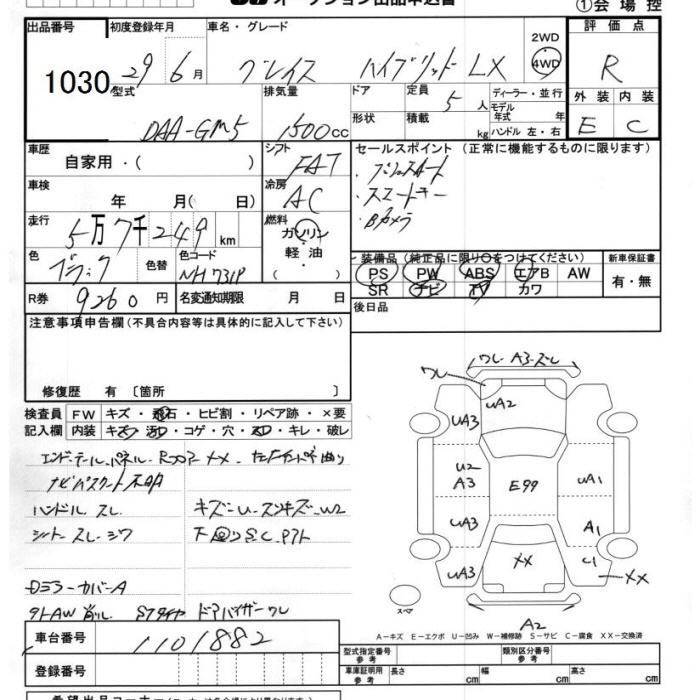 オークション出品申込書
①会場控
出品番号 初度登録年月 車名・グレード 2WD 評価点
1030 29 6月 グレイス ハイブリッド LX 4WD R
型式 排気量 ドア 定員 5人 ディーラー・並行 外装 内装
モデル年式 年
DAA-GM5 1500cc 形状 積載 kg ハンドル 左・右 E C
車歴 シフト セールスポイント (正常に機能するものに限ります)
自家用・( ) FAT ・プッシュスタート
車検 冷房 ・スマートキー
年 月(日) AC ・Bカメラ
走行 燃料
5万7千249km ガソリン
色 色替 色コード 軽油 装備品(純正品に限り○をつけてください) 新車保証書
ブラック NH731P ( ) PS PW ABS エアB AW 有・無
SR ナビ TV カワ
R券 9260円 名変通知期限 月 日 後日品
注意事項申告欄(不具合内容等は具体的に記入して下さい)
修復歴 有〔箇所 〕
検査員 FW キズ・飛石・ヒビ割・リペア跡・×要
記入欄 内装 キズ・汚・コゲ・穴・スレ・キレ・破レ
エンドテールパネル
ハンドル スレ キズ-U
シート スレ シワ 下回りS.C
ドミラーカバーA
タイヤ ドアバイザーワレ
車台番号 1101882
登録番号
ワレ A3 スレ
ワレ
UA2
UA3
U2
A3 E99 UA1
UA3 A1
UA3 XX C1 XX
スペア A2
A-キズ E-エクボ U-凹み W-補修跡 S-サビ C-腐食 XX-交換済
型式指定番号 参考 類別区分番号 参考
車庫証明用 参考 長さ cm 幅 cm 高さ cm